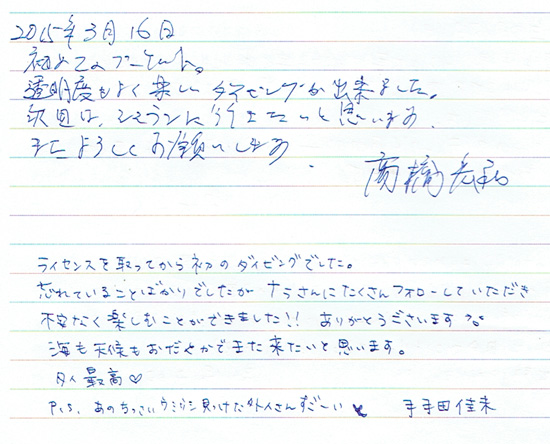 2015年3月16日
初めてのプーケット。
透明度もよく楽しいダイビングが出来ました。
次回は、シミランに行きたいと思います。
またよろしくお願いします。
高橋
ライセンスを取ってから初のダイビングでした。
忘れていることばかりでしたが ナラさんにたくさんフォローしていただき
不安なく楽しむことができました!! ありがとうございます
海も天候もおだやかでまた来たいと思います。
タイ最高♡
P.S. あのちっさいウミウシ見つけた外人さんすごーい